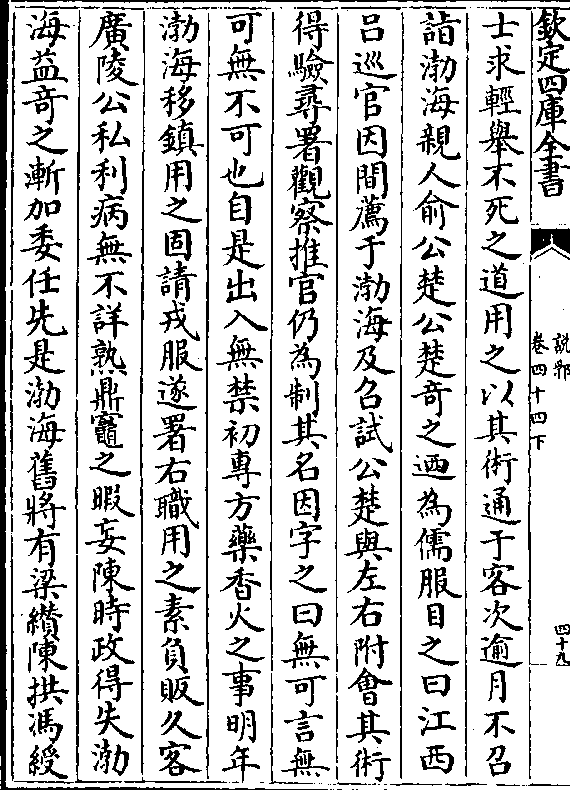 欽定四庫全書
說郛
卷四十四下
四十九
士求輕舉不死之道用之以其術通于客次逾月不召
詣渤海親人俞公楚公楚奇之迺為儒服目之曰江西
呂巡官因間薦于渤海及召試公楚與左右附會其術
得驗尋署觀察推官仍為制其名因字之曰無可言無
可無不可也自是出入無禁初專方藥香火之事明年
渤海移鎮用之固請戎服遂署右職用之素負販久客
廣陵公私利病無不詳熟鼎竈之暇妄陳時政得失渤
海益奇之漸加委任先是渤海舊將有梁纘陳拱馮綬